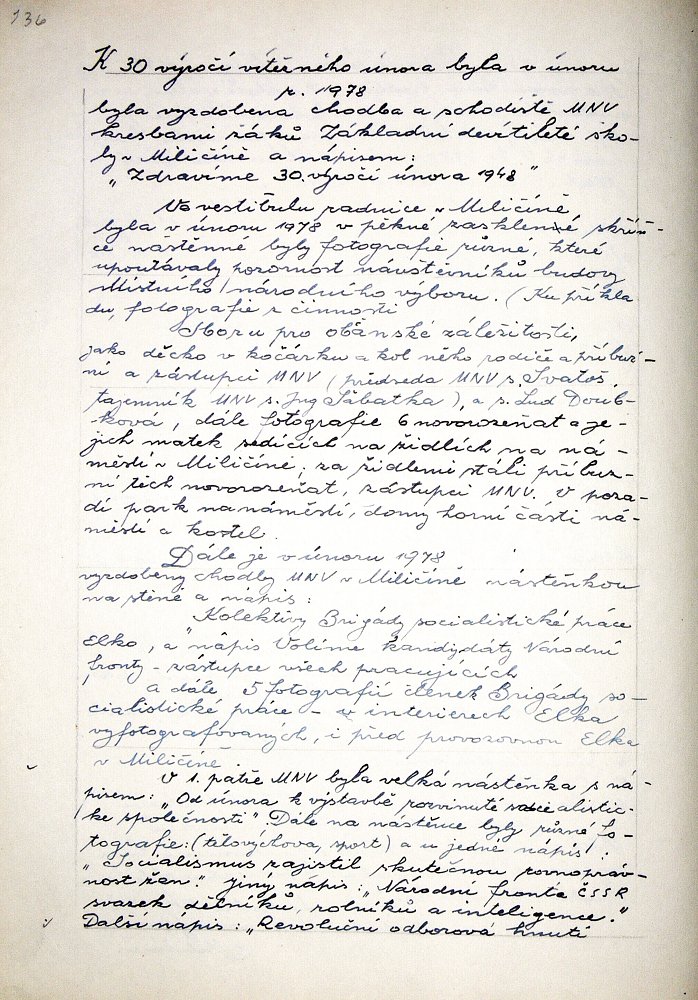 136
K 30 výročí vítězného února byla v únoru
r. 1978
byla vyzdobena chodba a schodiště MNV
kresbami žáků Základní devítileté ško-
ly v Miličíně a nápisem:
„Zdravíme 30. výročí února 1948"
Ve vestibulu radnice v Miličíně,
byla v únoru 1978 v pěkné zasklené skříň-
ce nástěnné byly fotografie různé, které
upoutávaly pozornost návštěvníků budovy
Místního národního výboru. (Ku příkla
du, fotografie z činnosti
Sboru pro občanské záležitosti,
jako děcko v kočárku a kol něho rodiče a příbuz-
ní a zástupci MNV (předseda MNV s. Svatoš,
tajemník MNV s. Ing Sabatka), a s. Lud Doub-
ková, dále fotografie 6 novorozeňat a je-
jich matek sedících na židlích na ná-
městí v Miličíně, za židlemi stáli příbuz-
ní těch novorozeňat, zástupci MNV. V poza-
dí park na náměstí, domy horní části ná-
městí a kostel.
Dále je v únoru 1978
vyzdobeny chodby MNV v Miličíně nástěnkou
na stěně a nápis:
"Kolektivy Brigády socialistické práce
Elko, a "nápis Volíme kandydáty Národní
fronty - zástupce všech pracujících
a dále 5 fotografií členek Brigády so-
cialistické práce - v interierech Elka
vyfotografovaných, i před provozovnou Elka
v Miličíně.
V 1. patře MNV byla velká nástěnka s ná-
pisem: "Od února k výstavbě rozvinuté socialistic-
ké společnosti". Dále na nástěnce byly různé fo-
tografie: (tělovýchova, sport) a u jedné nápis:
„Socialismus zajistil skutečnou rovnopráv-
nost žen." jiný nápis: „Národní fronta ČSSR
svazek dělníků, rolníků a inteligence."
Další nápis: „Revoluční odborová hnutí